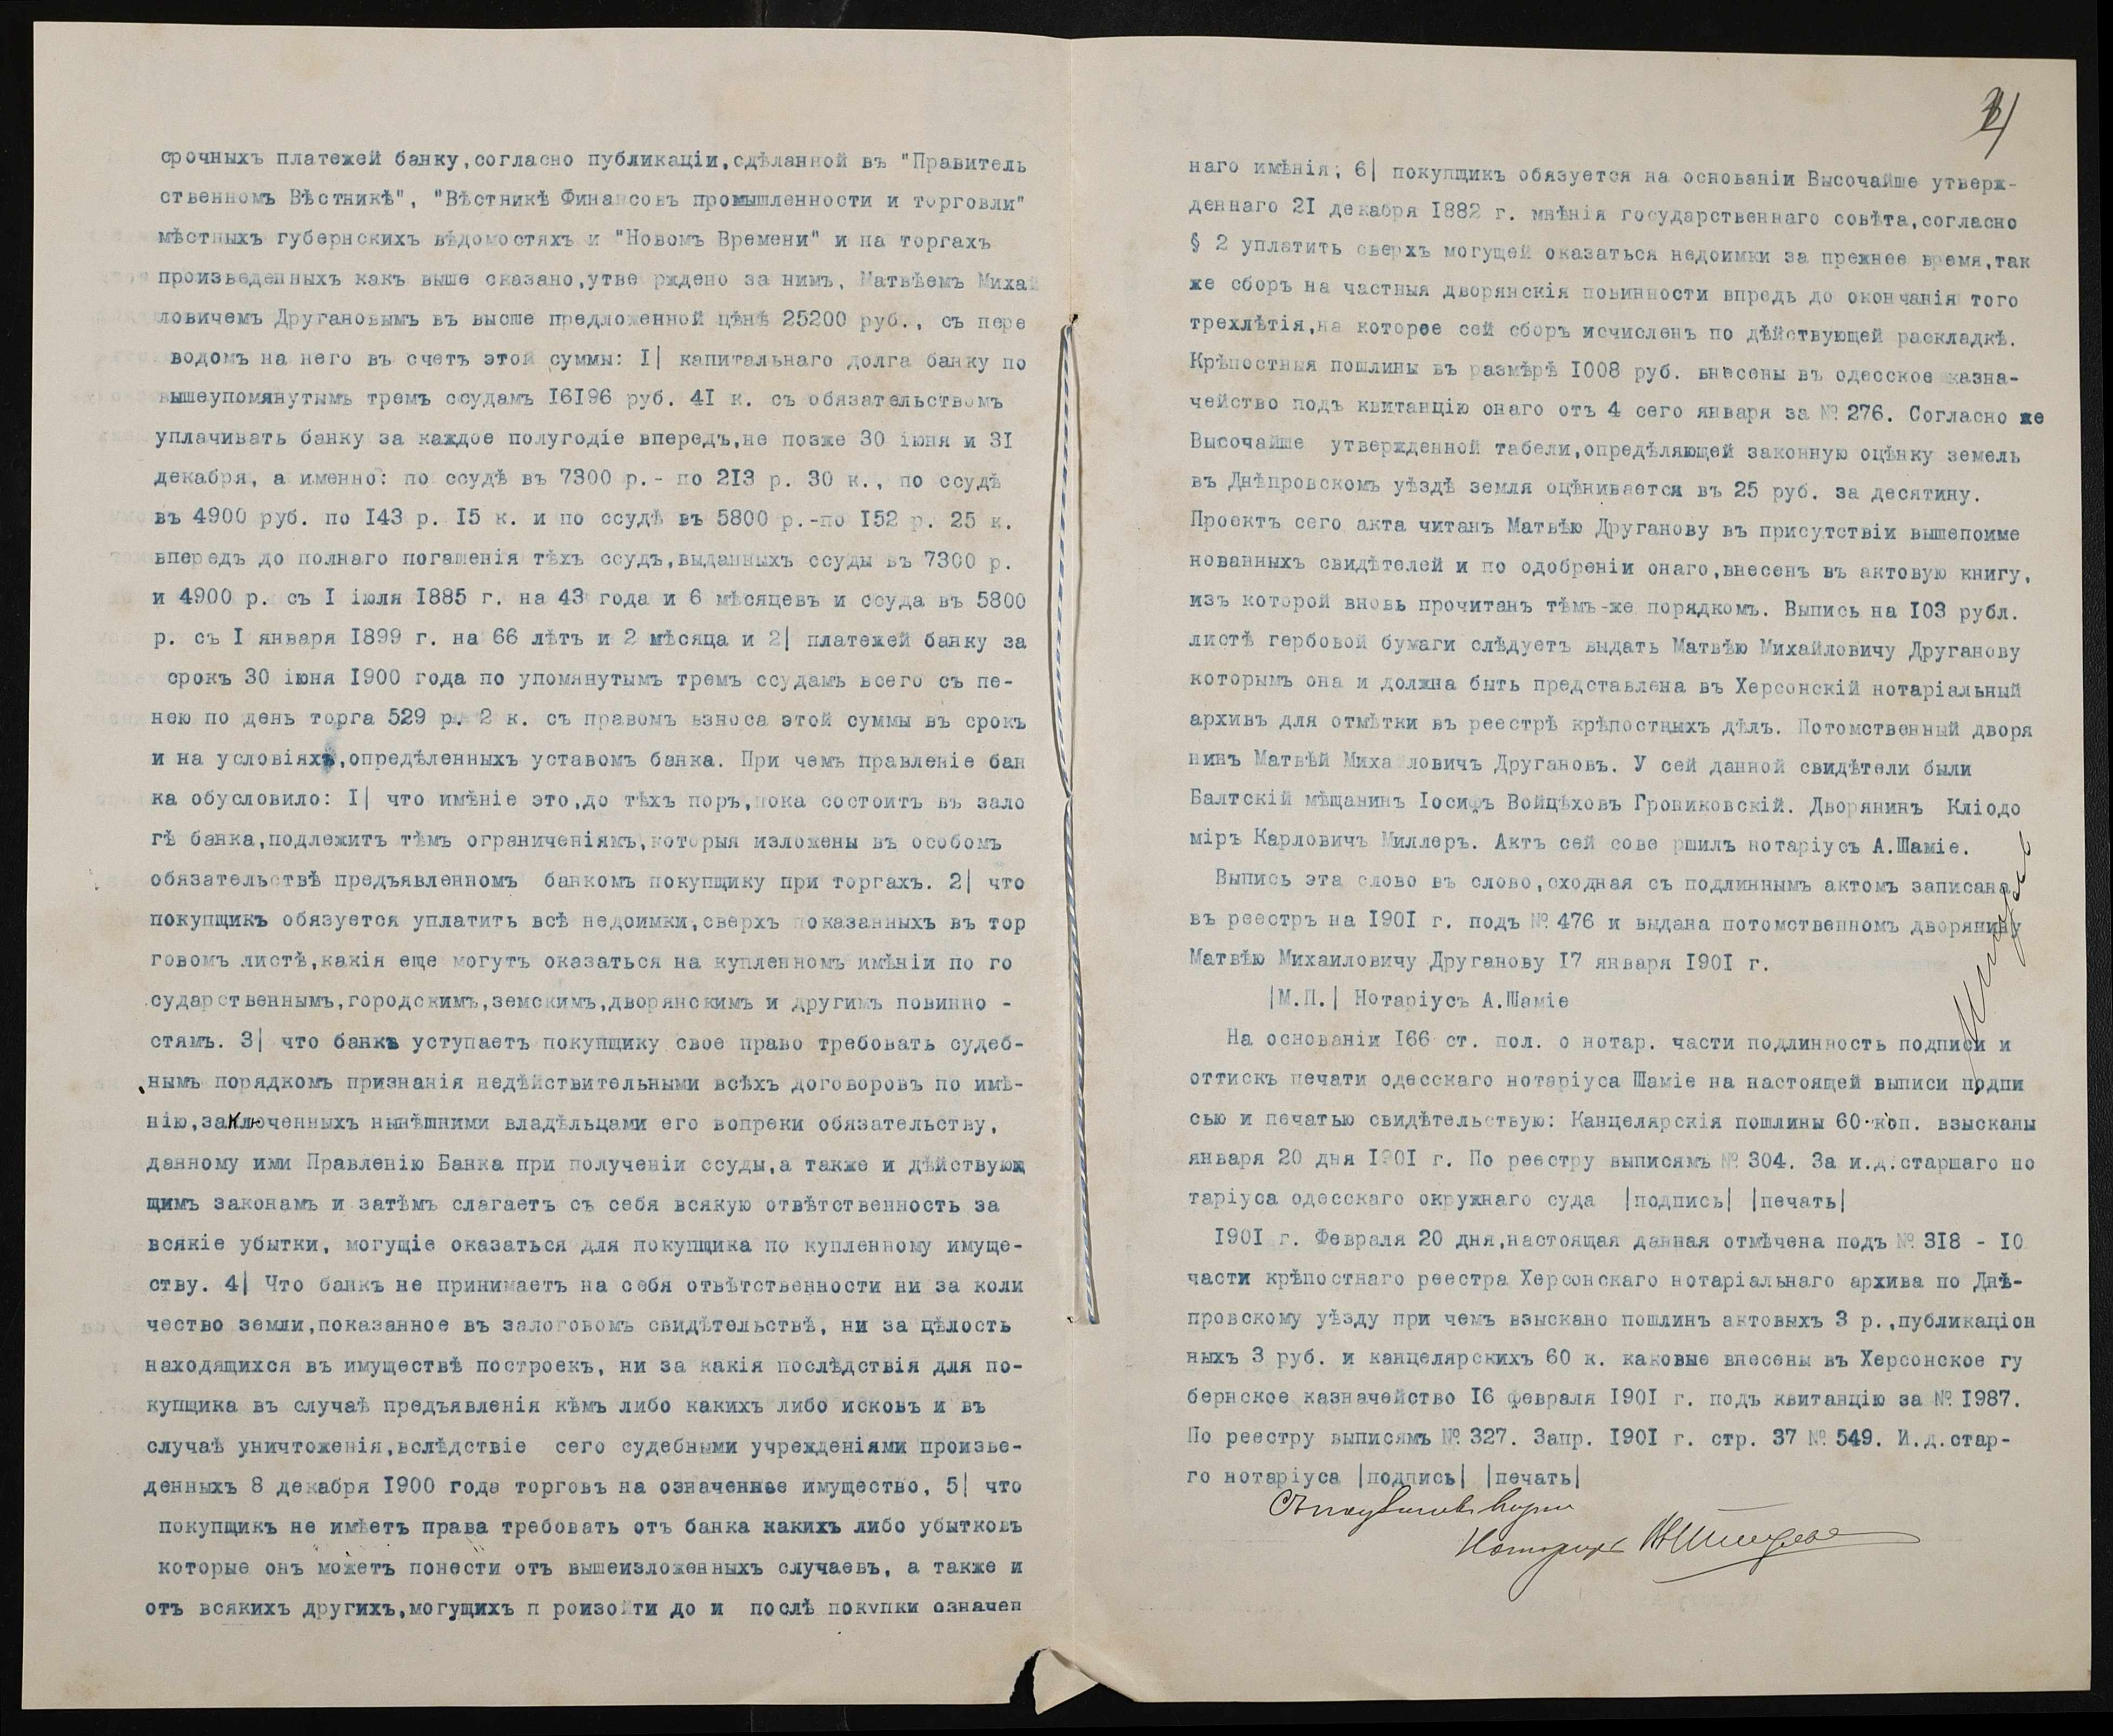 срочныхъ платежей банку,согласно публикаціи,сдѣланной въ "Правитель
ственномъ Вѣстникѣ", "Вѣстникѣ Финансовъ промышленности и торговли"
мѣстныхъ губернскихъ вѣдомостяхъ и "Новомъ Времени" и на торгахъ
произведенныхъ какъ выше сказано,утве рждено за нимъ, Матвѣемъ Михай
ловичемъ Другановымъ въ высше предложенной цѣнѣ 25200 руб., съ пере
водомъ на него въ счетъ этой суммы: I| капитальнаго долга банку по
вышеупомянутымъ тремъ ссудамъ I6I96 руб. 4I к. съ обязательствомъ
уплачивать банку за каждое полугодіе впередъ,не позже 30 іюня и 3I
декабря, а именно: по ссудѣ въ 7300 р.- по 2I3 р. 30 к., по ссудѣ
въ 4900 руб. по I43 р. I5 к. и по ссудѣ въ 5800 р.-по I52 р. 25 к.
впередъ до полнаго погашенія тѣхъ ссудъ,выданныхъ ссуды въ 7300 р.
и 4900 р. съ I іюля I885 г. на 43 года и 6 мѣсяцевъ и ссуда въ 5800
р. съ I января I899 г. на 66 лѣтъ и 2 мѣсяца и 2| платежей банку за
срокъ 30 іюня I900 года по упомянутымъ тремъ ссудамъ всего съ пе-
нею по день торга 529 р. 2 к. съ правомъ взноса этой суммы въ срокъ
и на условіяхъ,опредѣленныхъ уставомъ банка. При чемъ правленіе бан
ка обусловило: I| что имѣніе это,до тѣхъ поръ,пока состоитъ въ зало
гѣ банка,подлежитъ тѣмъ ограниченіямъ,которыя изложены въ особомъ
обязательствѣ предъявленномъ банкомъ покупщику при торгахъ. 2| что
покупщикъ обязуется уплатить всѣ недоимки,сверхъ показанныхъ въ тор
говомъ листѣ,какія еще могутъ оказаться на купленномъ имѣніи по го
сударственнымъ,городскимъ,земскимъ,дворянскимъ и другимъ повинно -
стямъ. 3| что банкъ уступаетъ покупщику свое право требовать судеб-
нымъ порядкомъ признанія недѣйствительными всѣхъ договоровъ по имѣ-
нію,заключенныхъ нынѣшними владѣльцами его вопреки обязательству,
данному ими Правленію Банка при полученіи ссуды,а также и дѣйствующ
щимъ законамъ и затѣмъ слагаетъ съ себя всякую отвѣтственность за
всякіе убытки, могущіе оказаться для покупщика по купленному имуще-
ству. 4| Что банкъ не принимаетъ на себя отвѣтственности ни за коли
чество земли,показанное въ залоговомъ свидѣтельствѣ, ни за цѣлость
находящихся въ имуществѣ построекъ, ни за какія послѣдствія для по-
купщика въ случаѣ предъявленія кѣмъ либо какихъ либо исковъ и въ
случаѣ уничтоженія,вслѣдствіе сего судебными учрежденіями произве-
денныхъ 8 декабря I900 года торговъ на означенное имущество, 5| что
покупщикъ не имѣетъ права требовать отъ банка какихъ либо убытковъ
которые онъ можетъ понести отъ вышеизложенныхъ случаевъ, а также и
отъ всякихъ другихъ,могущихъ п роизойти до и послѣ покупки означен
наго имѣнія; 6| покупщикъ обязуется на основаніи Высочайше утверж-
деннаго 2I декабря I882 г. мнѣнія государственнаго совѣта,согласно
§ 2 уплатить сверхъ могущей оказаться недоимки за прежнее время,так
же сборъ на частныя дворянскія повинности впредь до окончанія того
трехлѣтія,на которое сей сборъ исчисленъ по дѣйствующей раскладкѣ.
Крѣпостныя пошлины въ размѣрѣ I008 руб. внесены въ одесское казна-
чейство подъ квитанцію онаго отъ 4 сего января за № 276. Согласно же
Высочайше утвержденной табели,опредѣляющей законную оцѣнку земель
въ Днѣпровскомъ уѣздѣ земля оцѣнивается въ 25 руб. за десятину.
Проектъ сего акта читанъ Матвѣю Друганову въ присутствіи вышепоиме
нованныхъ свидѣтелей и по одобреніи онаго,внесенъ въ актовую книгу,
изъ которой вновь прочитанъ тѣмъ-же порядкомъ. Выпись на I03 рубл.
листѣ гербовой бумаги слѣдуетъ выдать Матвѣю Михайловичу Друганову
которымъ она и должна быть представлена въ Херсонскій нотаріальный
архивъ для отмѣтки въ реестрѣ крѣпостныхъ дѣлъ. Потомственный дворя
нинъ Матвѣй Михайловичъ Другановъ. У сей данной свидѣтели были
Балтскій мѣщанинъ Іосифъ Войцѣховъ Гровиковскій. Дворянинъ Кліодо
міръ Карловичъ Миллеръ. Актъ сей сове ршилъ нотаріусъ А.Шаміе.
Выпись эта слово въ слово,сходная съ подлиннымъ актомъ записана
въ реестръ на I90I г. подъ № 476 и выдана потомственномъ дворянину
Матвѣю Михаиловичу Друганову I7 января I90I г.
|М.П.| Нотаріусъ А.Шаміе
На основаніи I66 ст. пол. о нотар. части подлинность подписи и
оттискъ печати одесскаго нотаріуса Шаміе на настоящей выписи подпи
сью и печатью свидѣтельствую: Канцелярскія пошлины 60 коп. взысканы
января 20 дня I90I г. По реестру выписямъ № 304. За и.д.старшаго но
таріуса одесскаго окружнаго суда |подпись| |печать|
I90I г. Февраля 20 дня,настоящая данная отмѣчена подъ № 3I8 - I0
части крѣпостнаго реестра Херсонскаго нотаріальнаго архива по Днѣ-
провскому уѣзду при чемъ взыскано пошлинъ актовыхъ 3 р.,публикаціон
ныхъ 3 руб. и канцелярскихъ 60 к. каковые внесены въ Херсонское гу
бернское казначейство I6 февраля I90I г. подъ квитанцію за № I987.
По реестру выписямъ № 327. Запр. I90I г. стр. 37 № 549. И.д.стар-
го нотаріуса |подпись| |печать|
Нотаріусъ